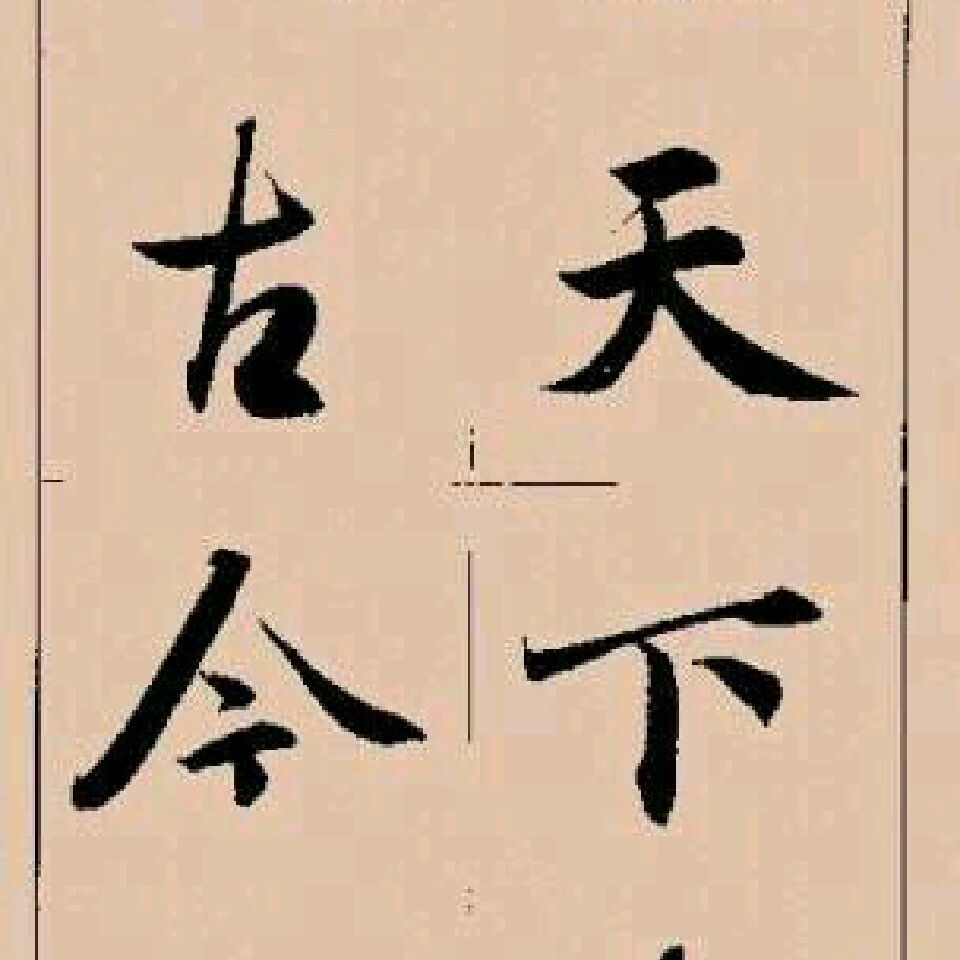 天下
古今